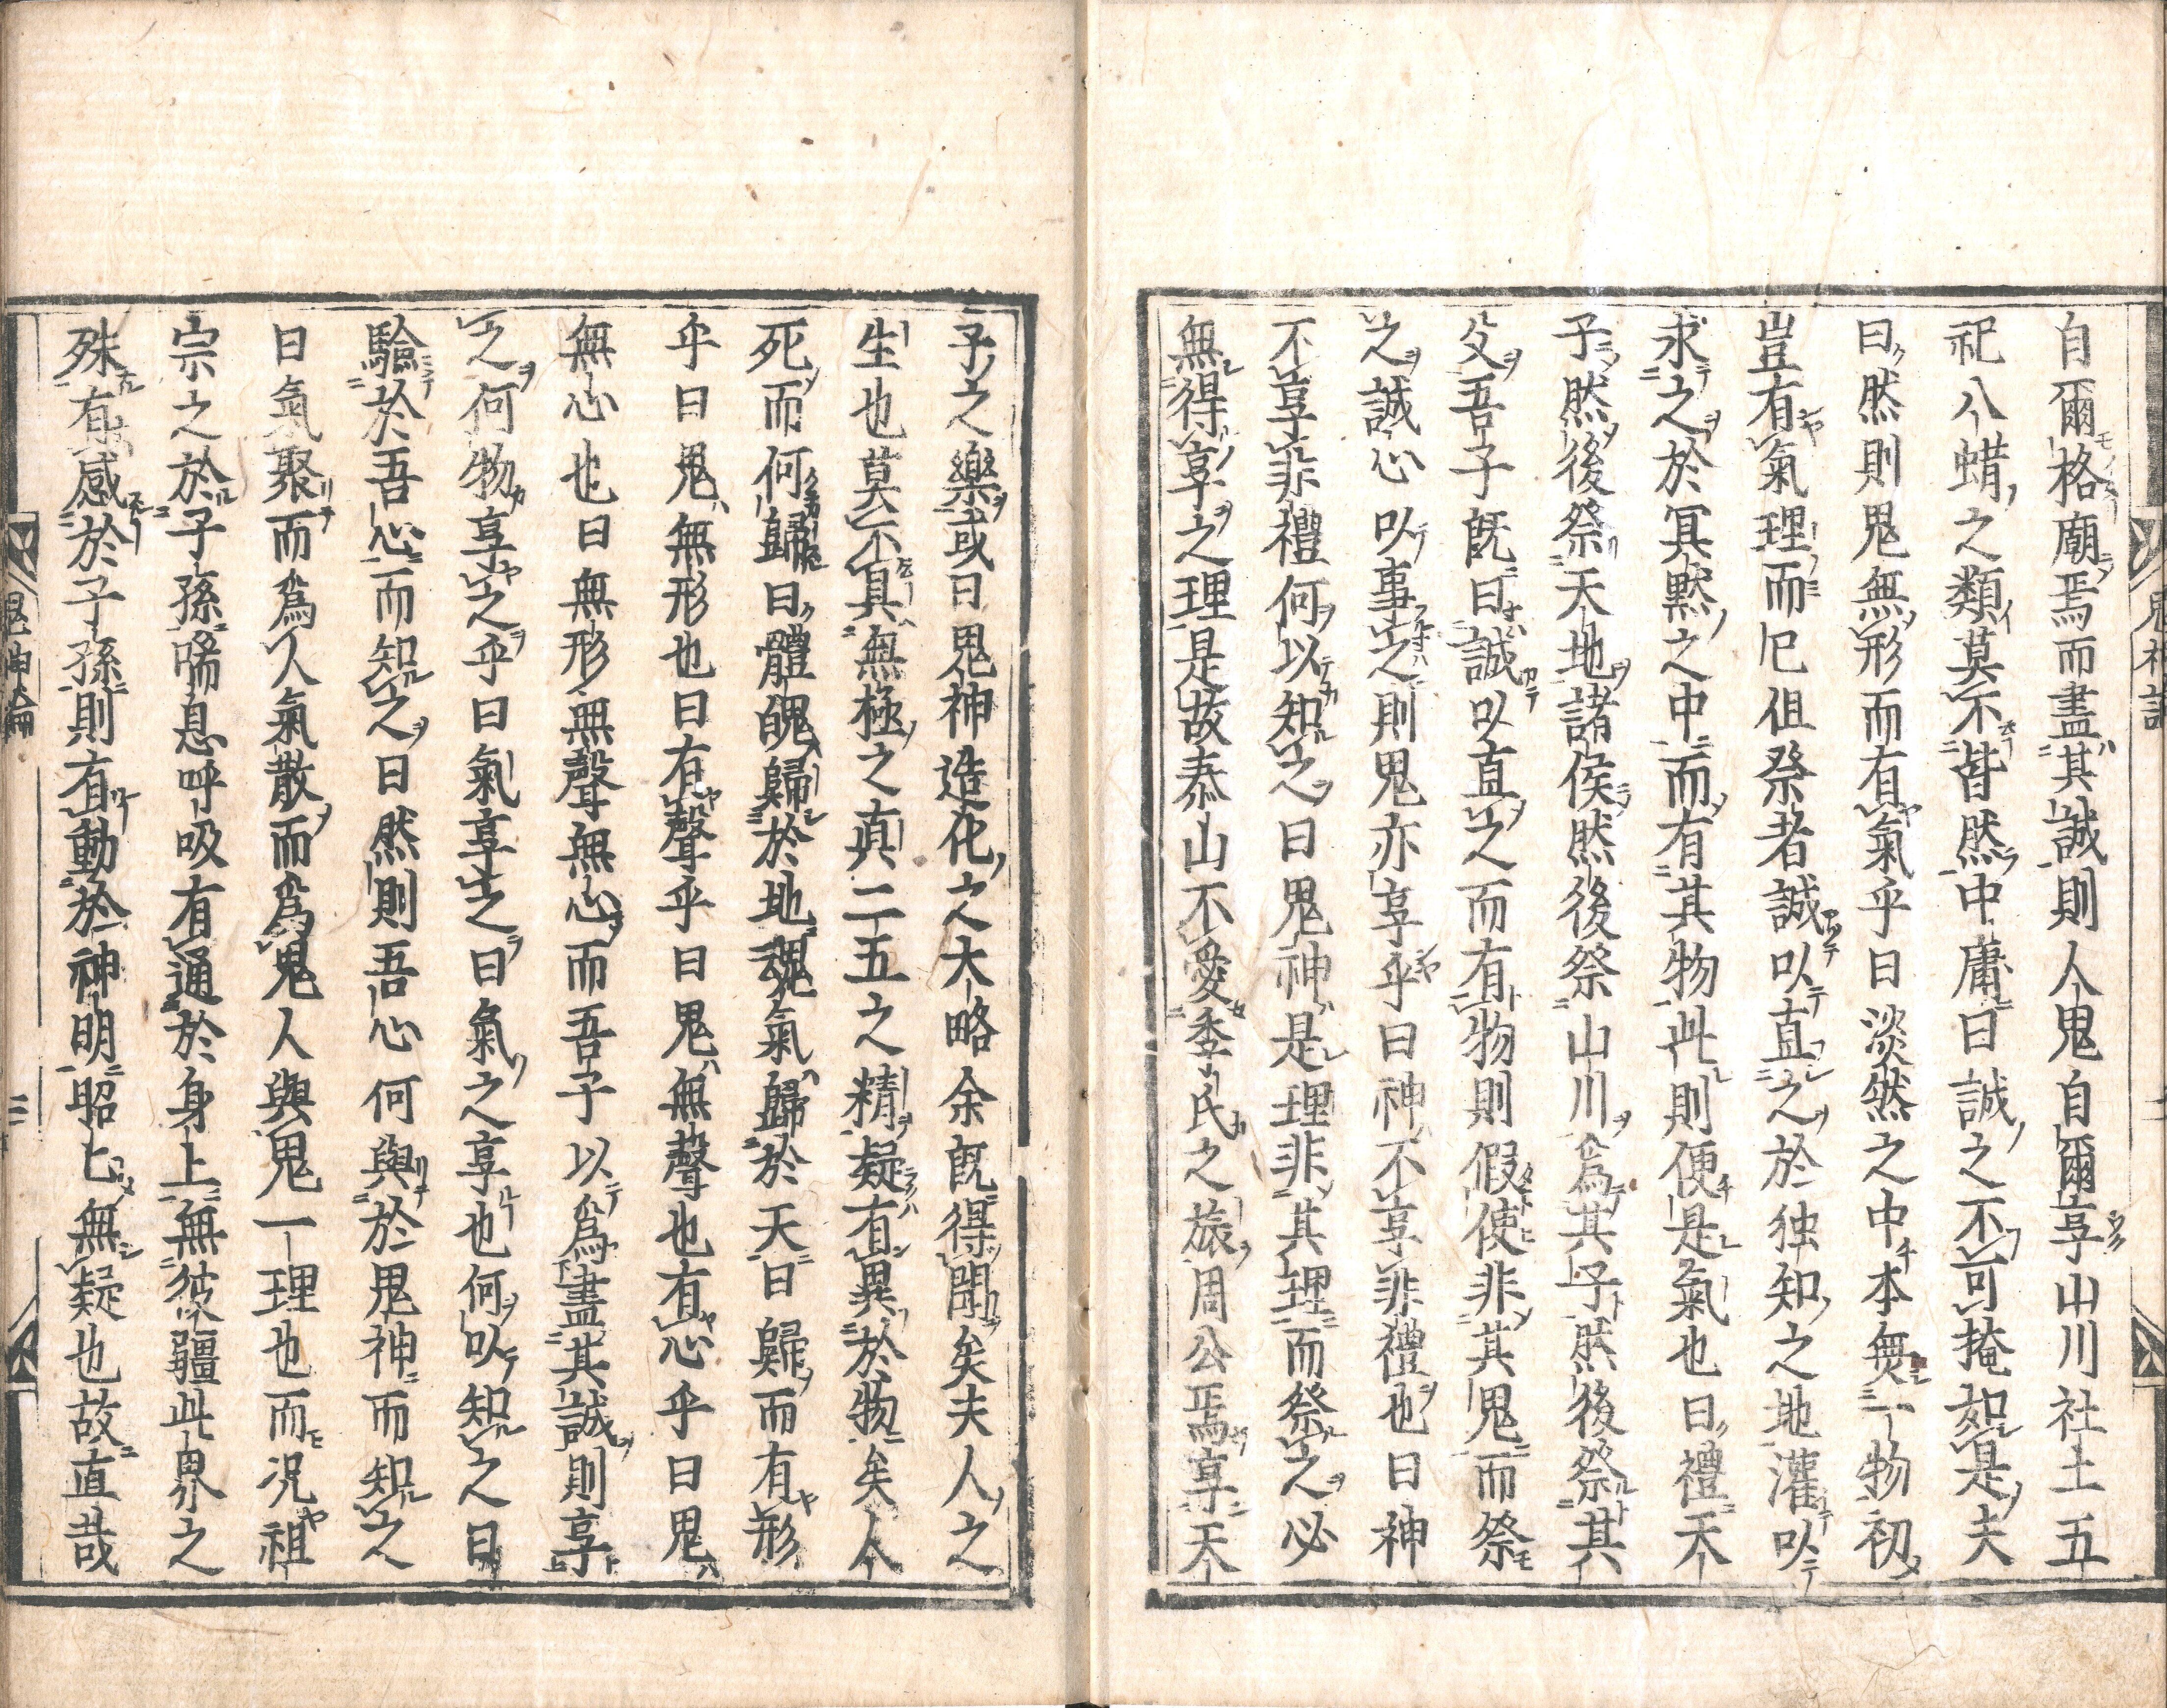 自爾格廟焉而盡其誠則人鬼自爾享山川社土五
祀八蜡之類莫不皆然中庸曰誠之不可掩如是夫
曰然則鬼無形而有氣乎曰淡然之中本無一物初
豈有氣理而已但祭者誠以直之於独知之地灌以
求之於冥黙之中而有其物此則便是氣也曰禮天
子然後祭天地諸侯然後祭山川為其子然後祭其
父吾子既曰誠以直之而有物則假使非其鬼而祭
之誠心以事之則鬼亦享乎曰神不享非禮也曰神
不享非禮何以知之曰鬼神是理非其理而祭之必
無得享之理是故泰山不愛季氏之旅周公焉享天
子之樂或曰鬼神造化之大略余既得聞矣夫人之
生也莫不具無極之真二五之精疑有異於物矣人
死而何歸曰體魄歸於地魂氣歸於天曰歸而有形
乎曰鬼無形也曰有聲乎曰鬼無聲也有心乎曰鬼
無心也曰無形無聲無心而吾子以爲盡其誠則享
之何物享之乎曰氣享之曰氣之享也何以知之曰
驗於吾心而知之曰然則吾心何與於鬼神而知之
曰氣聚而爲人氣散而爲鬼人與鬼一理也而况祖
宗之於子孫喘息呼吸有通於身上無彼疆此界之
殊有感於子孫則有動於神明昭匕無疑也故直哉
鬼神論